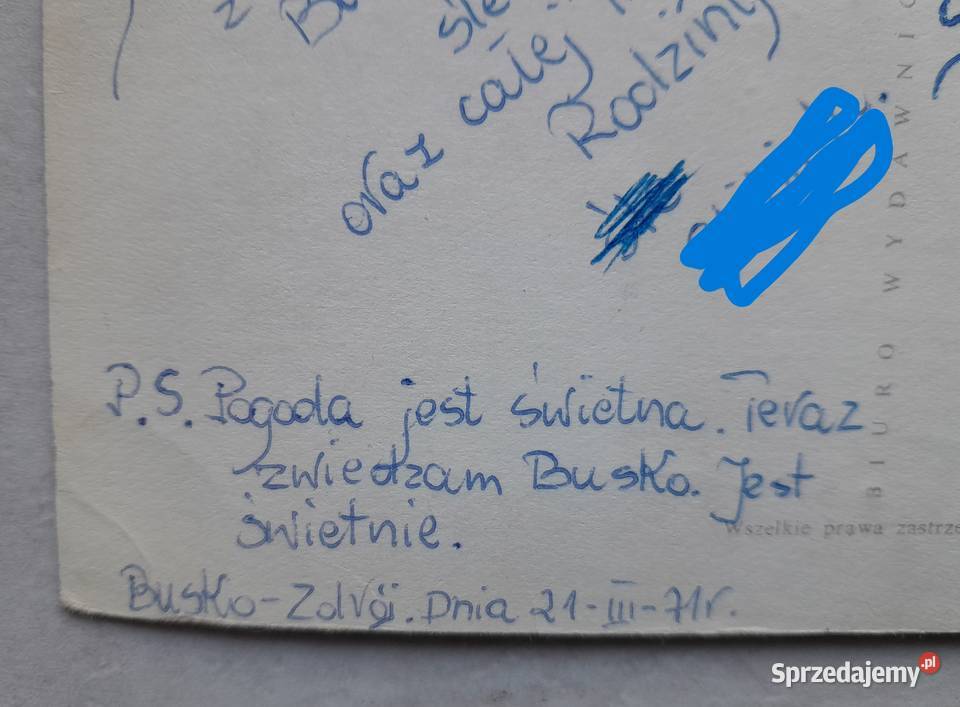 z
oraz całej
Rodziny
P.S. Pogoda jest świetna. Teraz
zwiedzam Busko. Jest
świetnie.
Busko-Zdrój. Dnia 21-III-71r.
BIURO WYDAWNIC
Wszelkie prawa zastrze
Sprzedajemy.pl